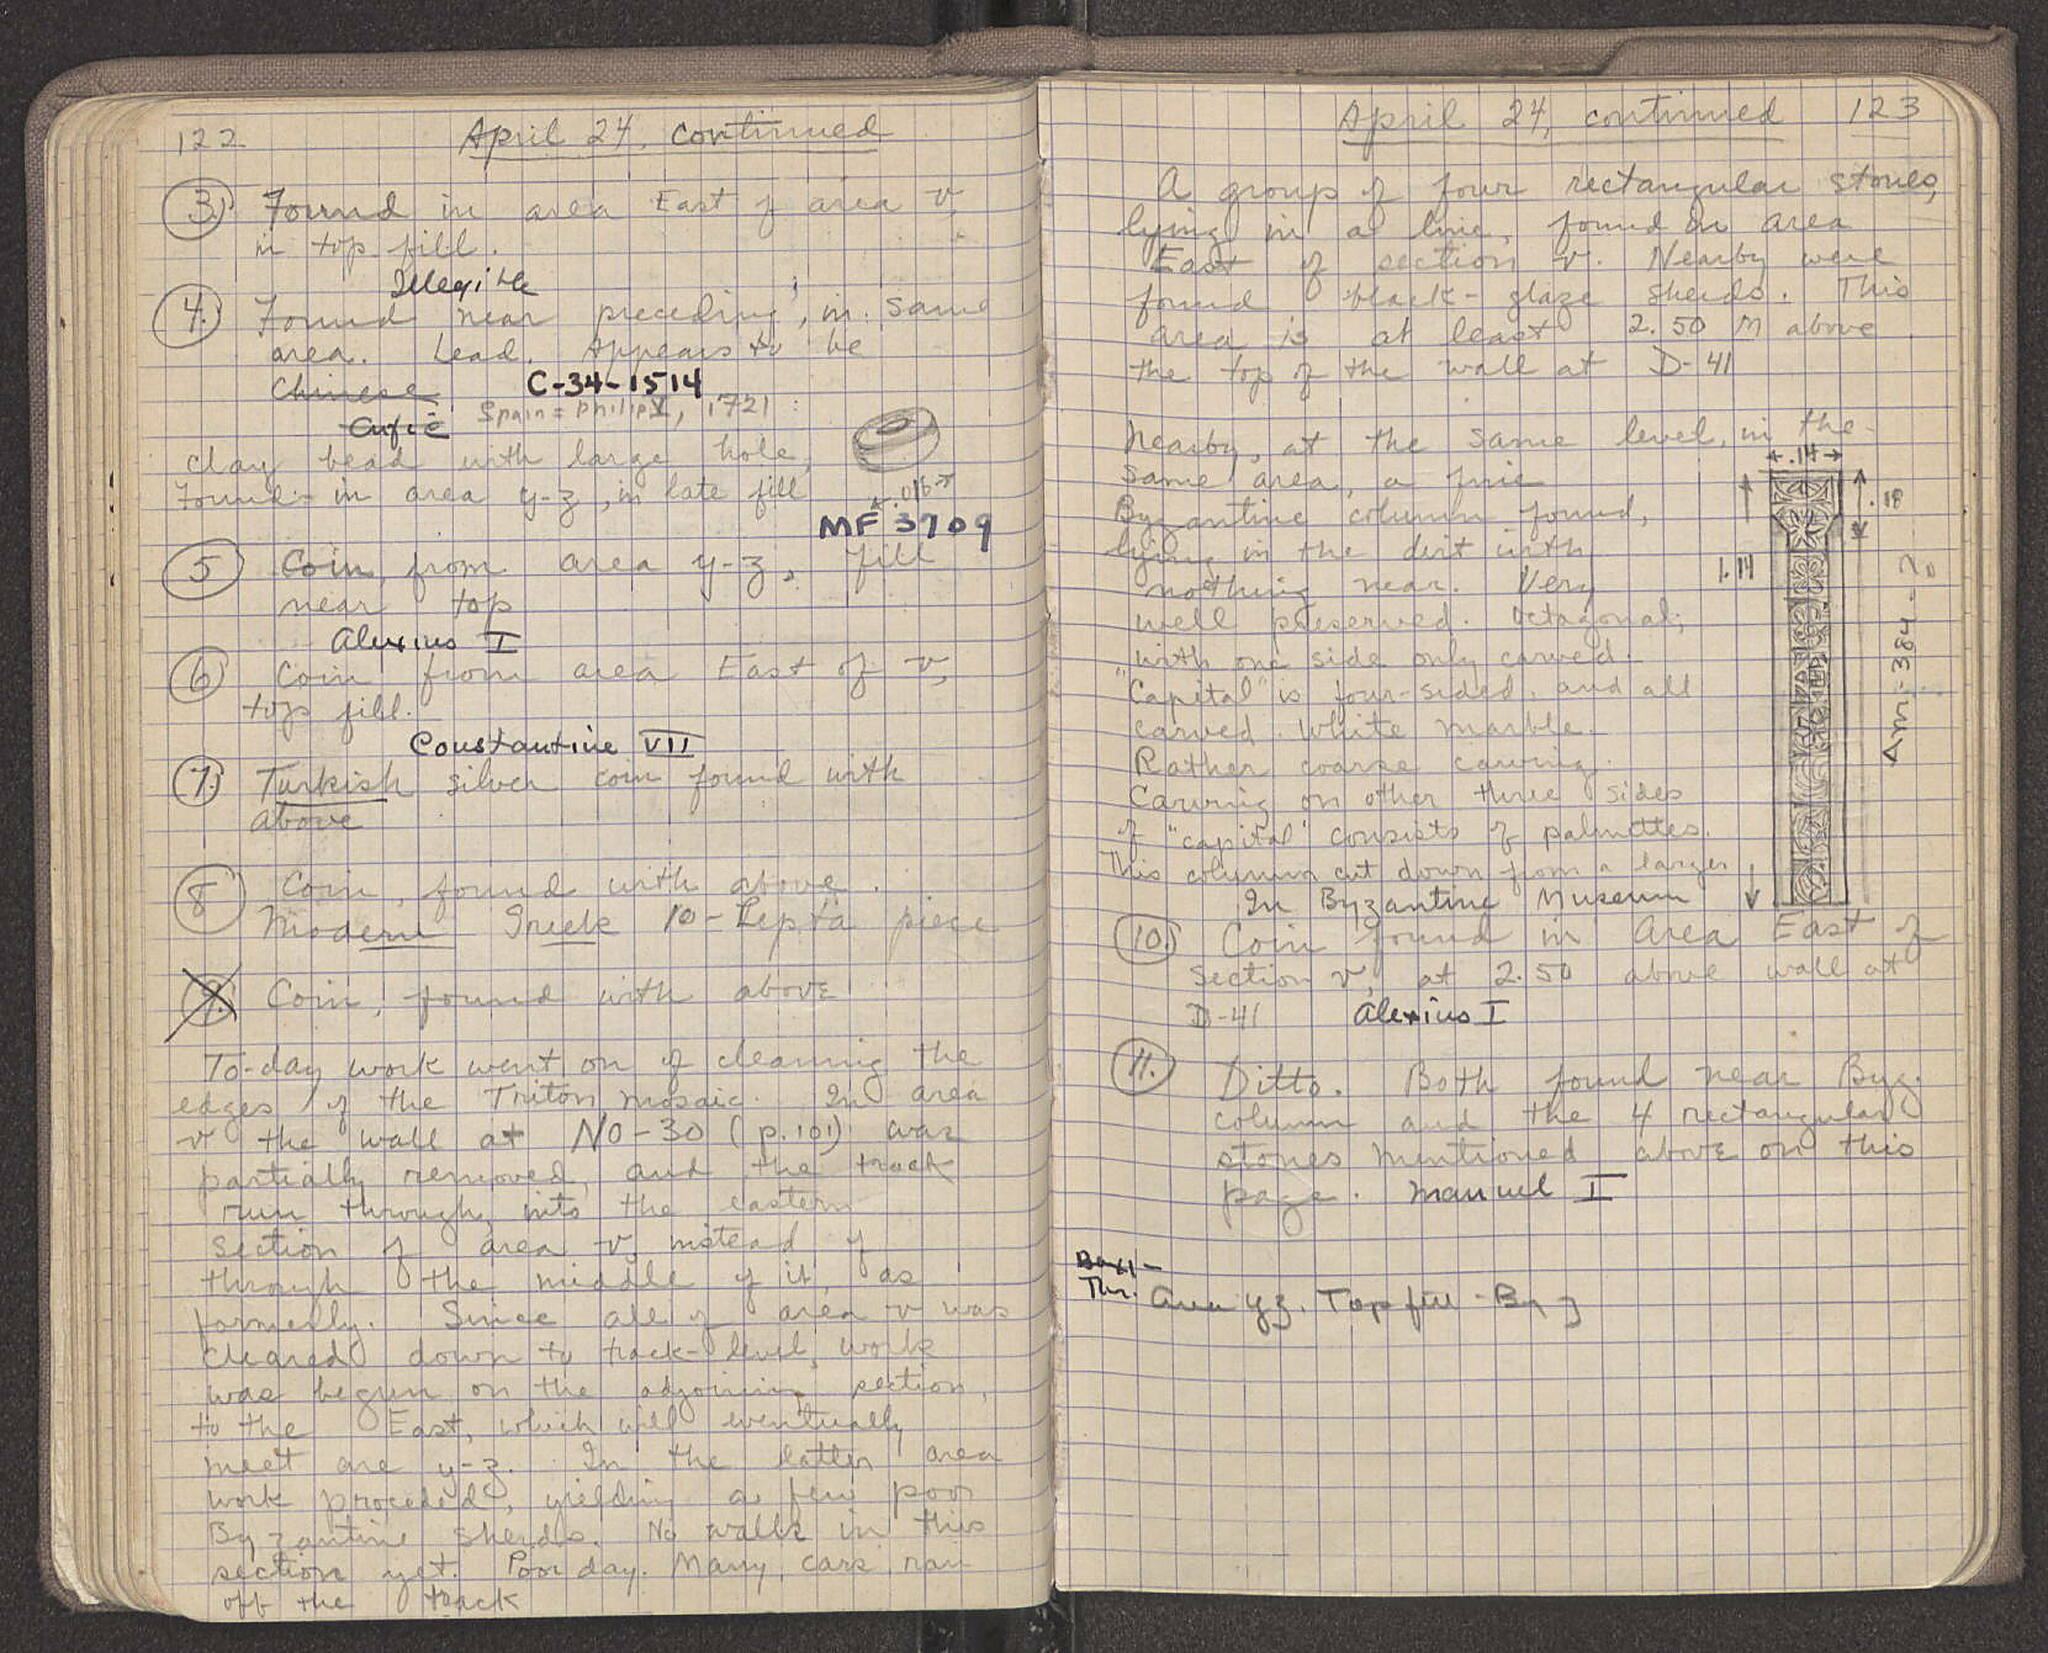 122 April 24, continued
3. Found in area East of area v,
in top fill.
Illegible
4. Found near preceding, in same
area. Lead. Appears to be
Chinese C-34-1514
Cufic Spain = Philip V, 1721
Clay bead with large hole,
Found in area y-z, in late fill
.016
MF 3709
5 Coin, from area y-z, fill
near top
Alexius I
6 Coin from area East of v,
top fill.
Constantine VII
7. Turkish silver coin found with
above
8 Coin, found with above.
Modern Greek 10-Lepta piece
9. Coin, found with above
To-day work went on of cleaning the
edges of the Triton mosaic. In area
v the wall at NO-30 (p. 101) was
partially removed, and the track
run through, into the eastern
section of area v, instead of
through the middle of it, as
formerly. Since all of area v was
cleared down to track-level, work
was begun on the adjoining section,
to the East, which will eventually
meet are y-z. In the latter area
work proceded, yielding a few poor
Byzantine sherds. No walls in this
section yet. Poor day. Many cars ran
off the track
April 24, continued 123
A group of four rectangular stones,
lying in a line, found in area
East of section v. Nearby were
found black-glaze sherds. This
area is at least 2.50 M above
the top of the wall at D-41
Nearby, at the same level, in the
same area, a fine
Byzantine column found,
lying in the dirt with
nothing near. Very
well preserved. Octagonal;
with one side only carved.
"Capital" is four-sided, and all
carved. White marble.
Rather coarse carving.
Carving on other three sides
of "capital" consists of palmettes.
This column cut down from a larger
In Byzantine Museum
.14
.18
1.14
Am-384
10. Coin found in Area East of
section v, at 2.50 above wall at
D-41 Alexius I
11. Ditto. Both found near Byz.
column and the 4 rectangular
stones mentioned above on this
page. Manuel I
Thr. Area yz. Top fill - Byz